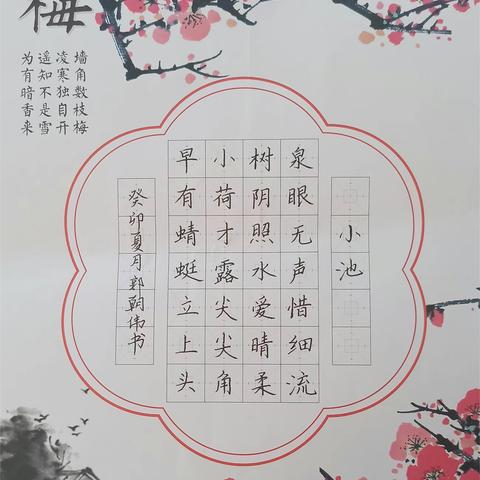 梅
墙角数枝梅
凌寒独自开
遥知不是雪
为有暗香来
小池
泉眼无声惜细流
树阴照水爱晴柔
小荷才露尖尖角
早有蜻蜓立上头
癸卯夏月郭朝伟书